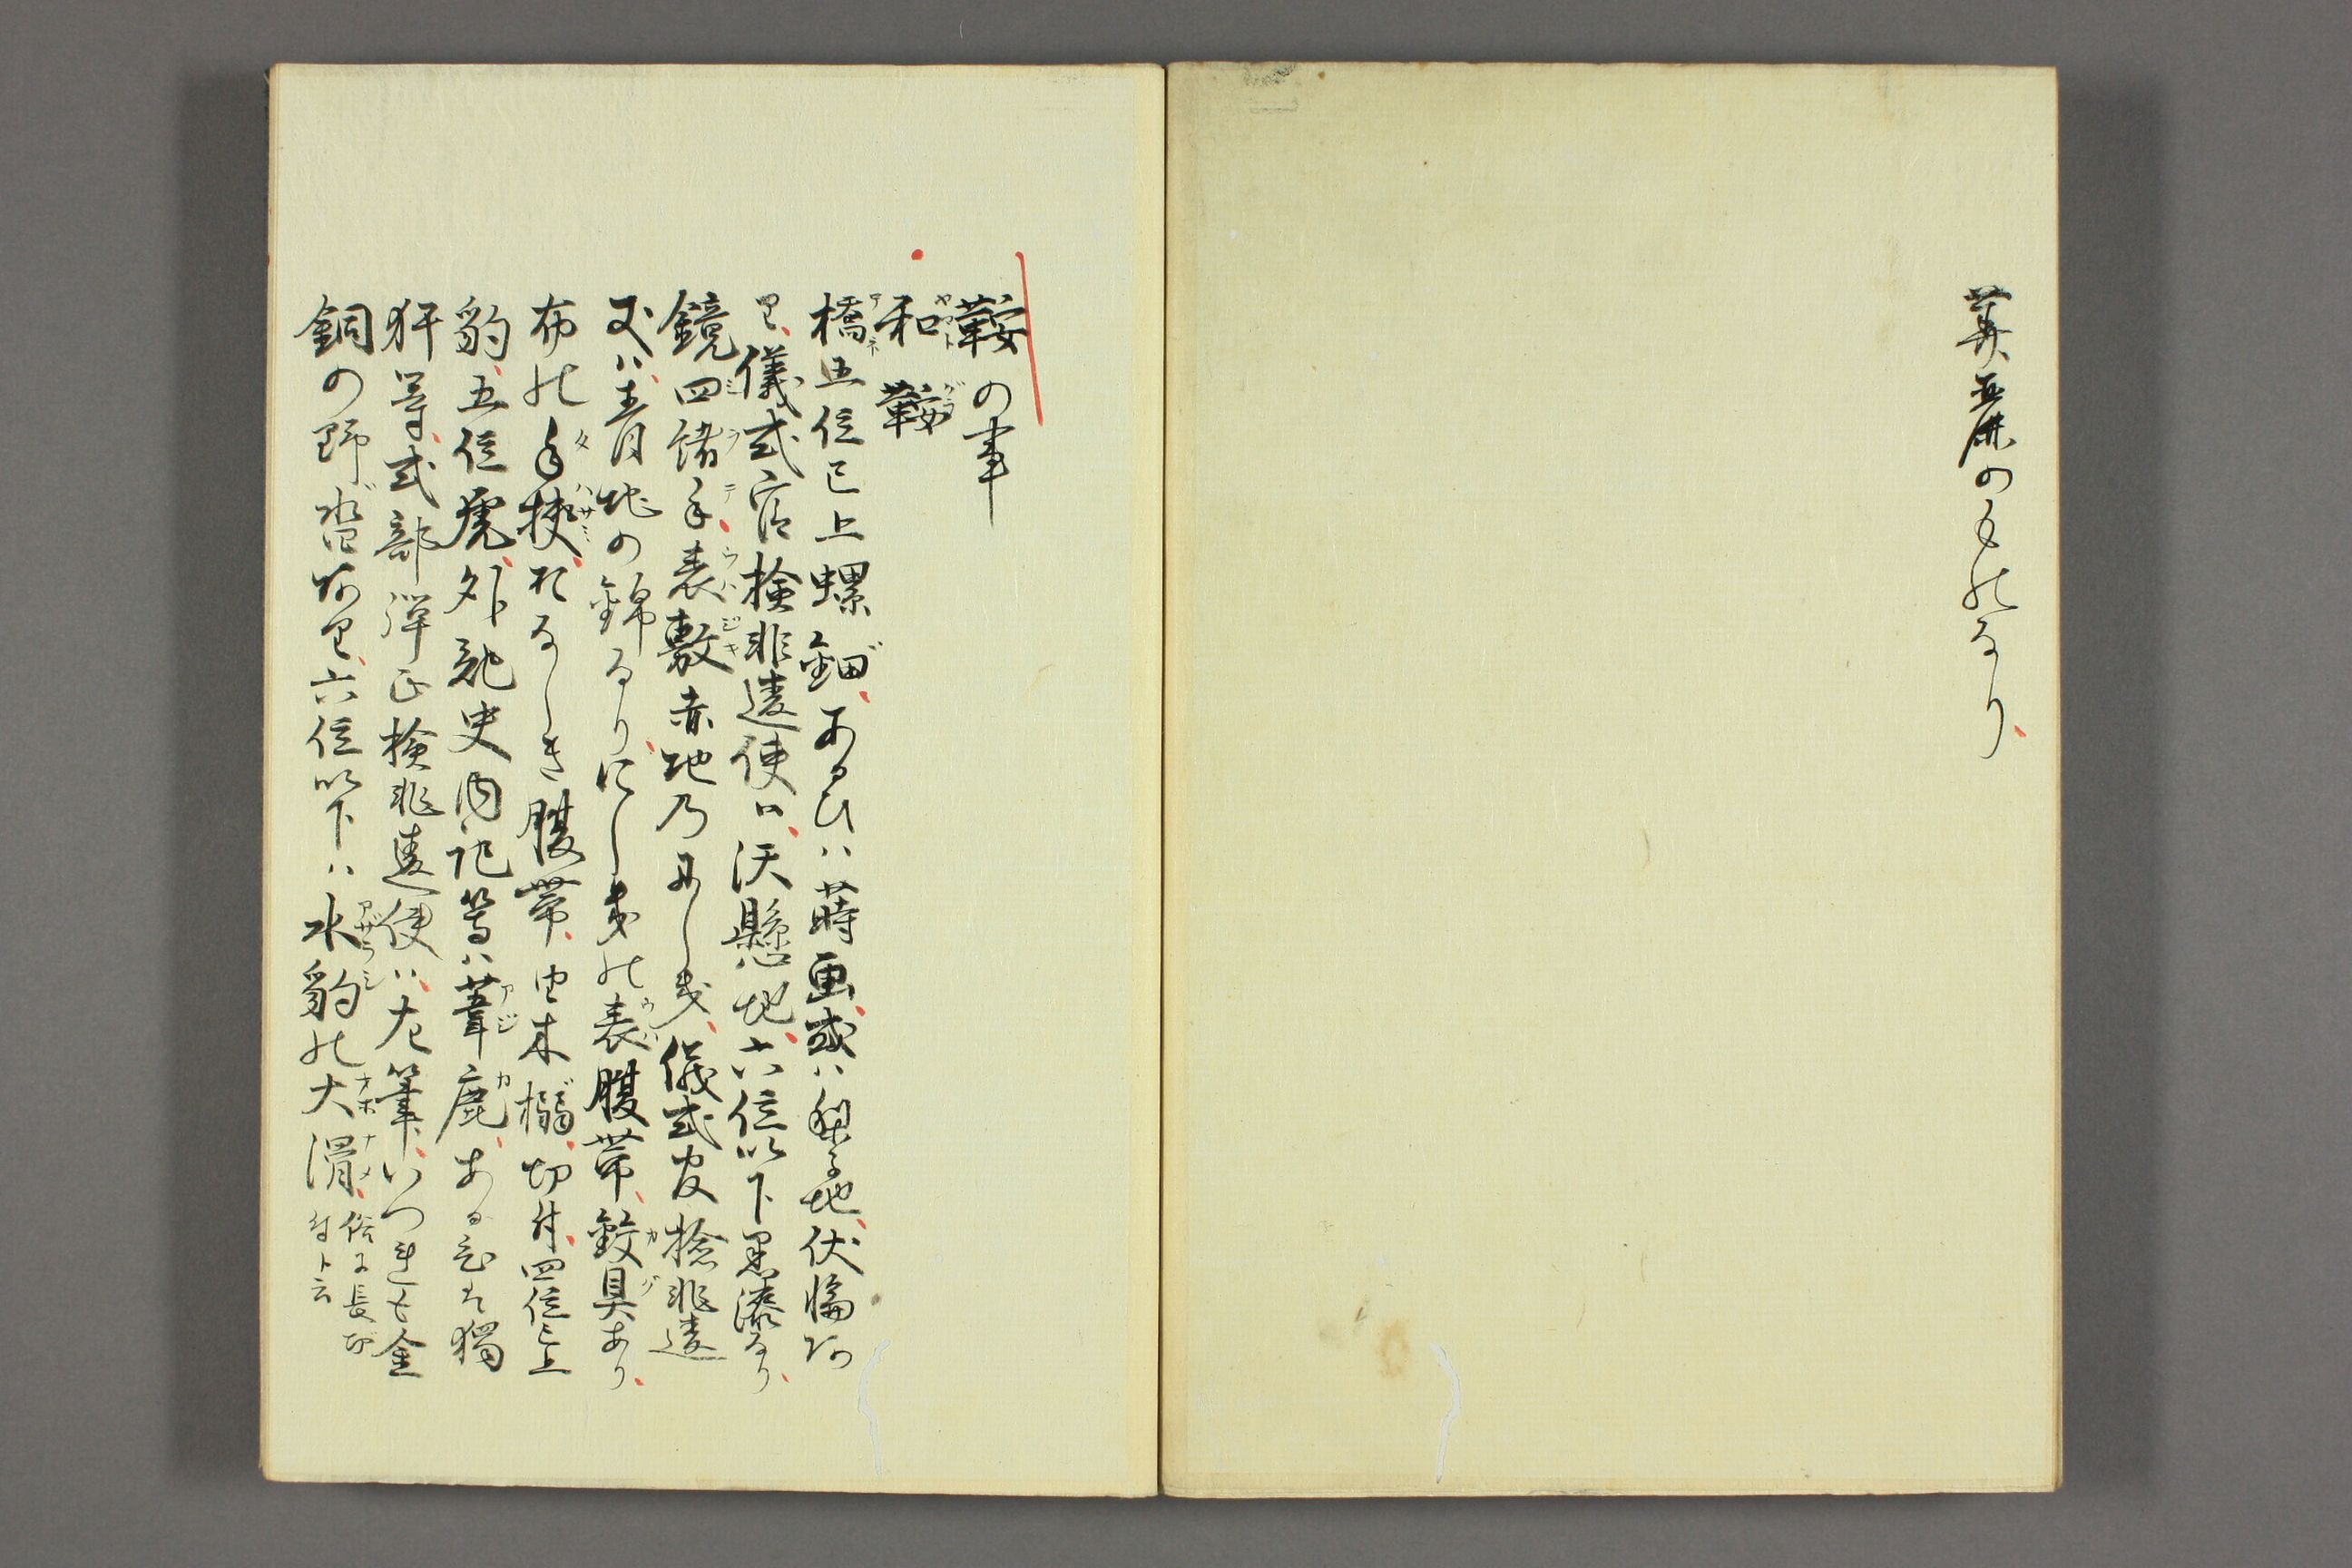 美麗のものなり、
鞍の事
和鞍
橋五位已上螺鈿、あるひハ蒔画、或ハ梨子地、伏輪あ
り、儀式官検非違使ハ、沃懸地、六位以下黒漆なり、
鏡四緒手、表敷赤地乃にしき、儀式官検非違
又ハ、青地の錦なり、にしき の表腹帯、鉸具あり、
布の手挟、おなしき腹帯、 木 、切付、四位已上
豹、五位虎、外記史内記等ハ葦鹿、あるひは獨
犴等、式部弾正検非違使ハ、左筆、いつれも金
銅の野沓あり、六位以下ハ水豹の大滑、俗ニ長切
付ト云